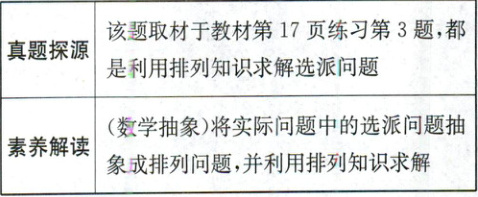 真题探源
该题取材于教材第 17 页练习第 3 题,都
是利用排列知识求解选派问题
素养解读
(数学抽象)将实际问题中的选派问题抽
象成排列问题,并利用排列知识求解